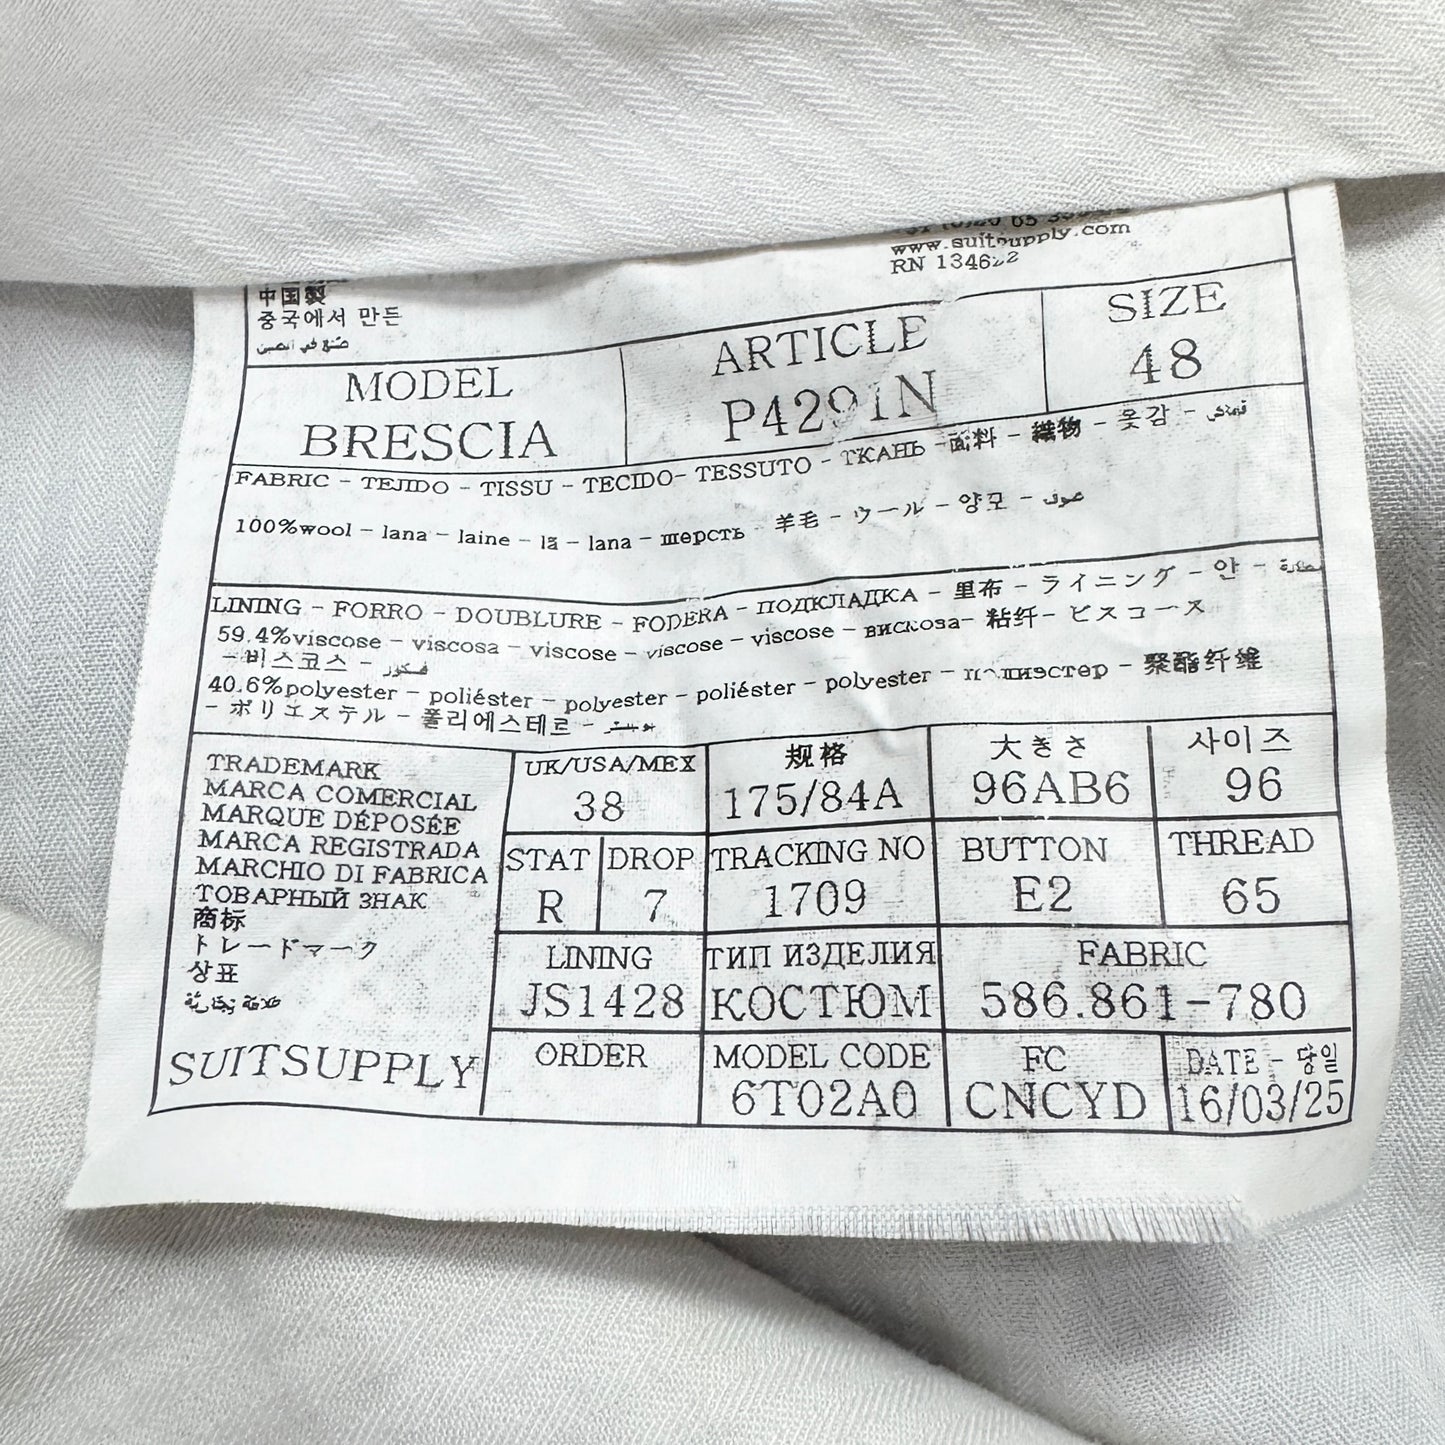 www.suitsupply.com
RN 134622
中国製
중국에서 만든
صنع في الصين
MODEL
BRESCIA
ARTICLE
P4291N
SIZE
48
FABRIC - TEJIDO - TISSU - TECIDO- TESSUTO - ТКАНЬ - 面料 - 織物 - 옷감 - قماش
100%wool - lana - laine - lã - lana - шерсть - 羊毛 - ウール - 양모 - صوف
LINING - FORRO - DOUBLURE - FODERA - ПОДКЛАДКА - 里布 - ライニング - 안 -
59.4%viscose - viscosa - viscose - viscose - viscose - вискоза- 粘纤- ビスコース
- 비스코스 - فسكوز
40.6%polyester - poliéster - polyester - poliéster - polyester - полиэстер - 聚酯纤维
- ポリエステル - 폴리에스테르 -
TRADEMARK
MARCA COMERCIAL
MARQUE DÉPOSÉE
MARCA REGISTRADA
MARCHIO DI FABRICA
ТОВАРНЫЙ ЗНАК
商标
トレードマーク
상표
علامة تجارية
SUITSUPPLY
UK/USA/MEX
38
规格
175/84A
大きさ
96AB6
사이즈
96
STAT
R
DROP
7
TRACKING NO
1709
BUTTON
E2
THREAD
65
LINING
JS1428
ТИП ИЗДЕЛИЯ
КОСТЮМ
FABRIC
586.861-780
ORDER
MODEL CODE
6T02A0
FC
CNCYD
DATE - 당일
16/03/25